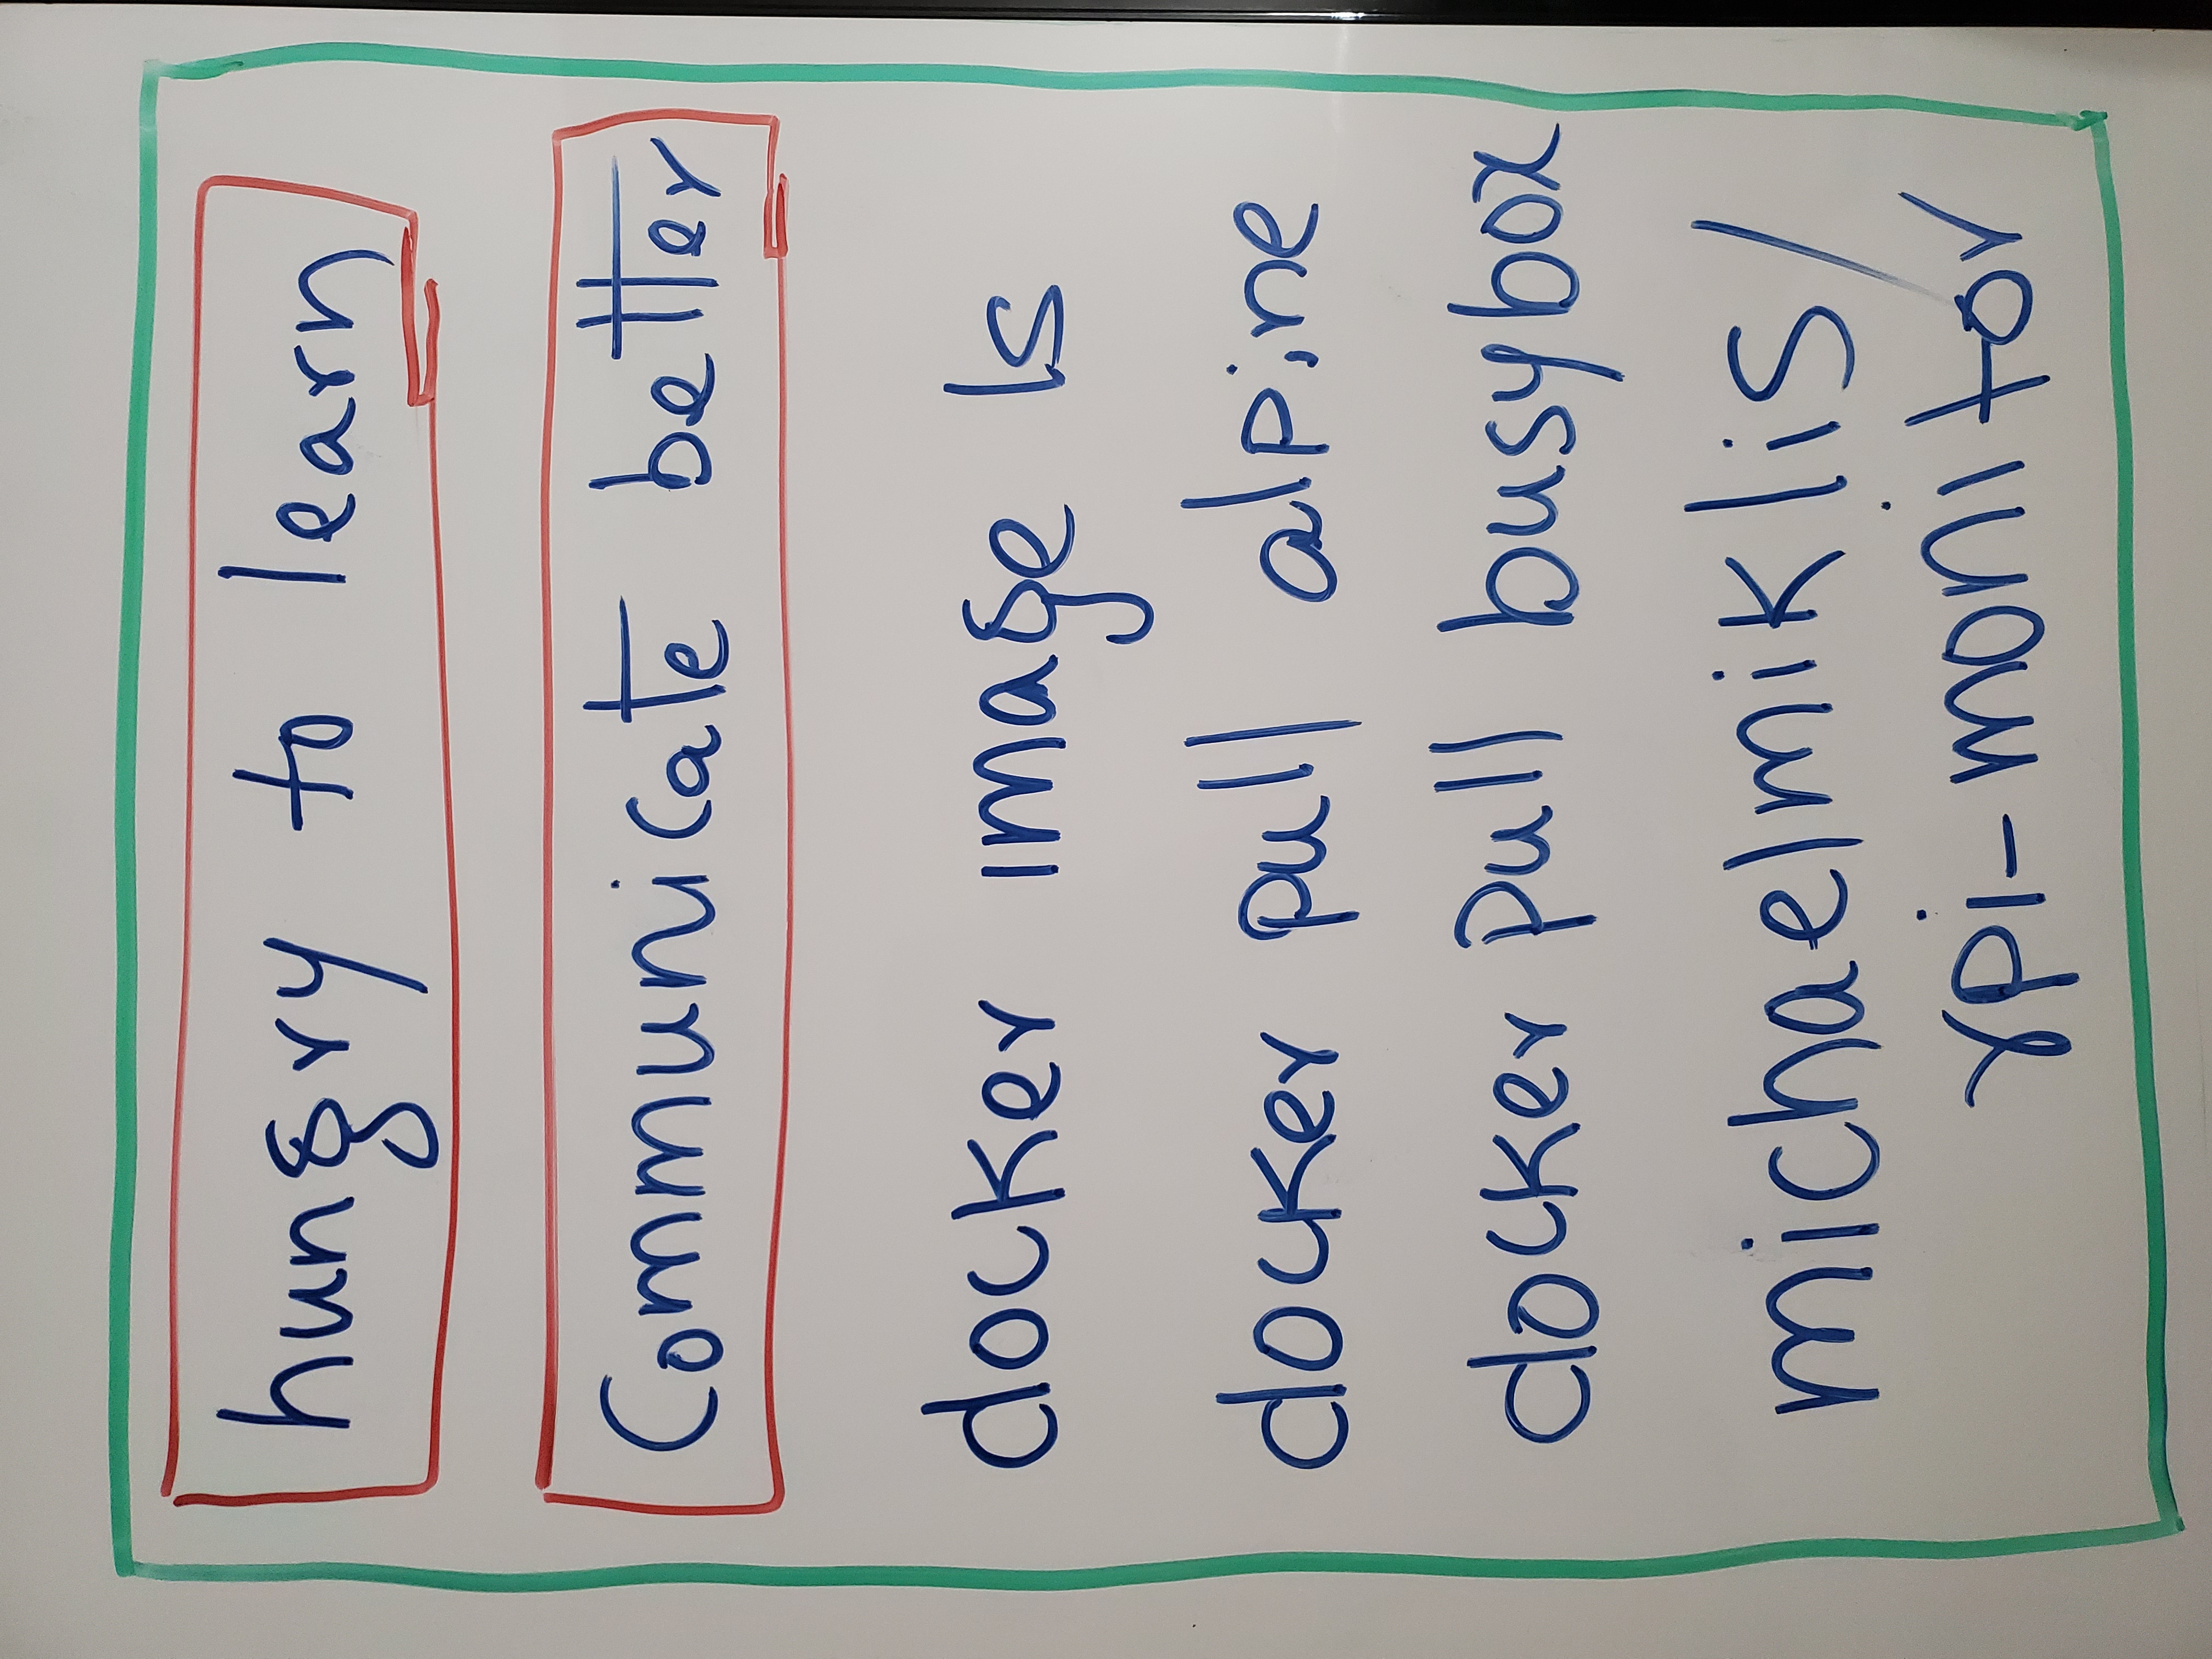 hungry to learn
Communicate better
docker image ls
docker pull alpine
docker pull busybox
michaelmiklis/
rpi-monitor